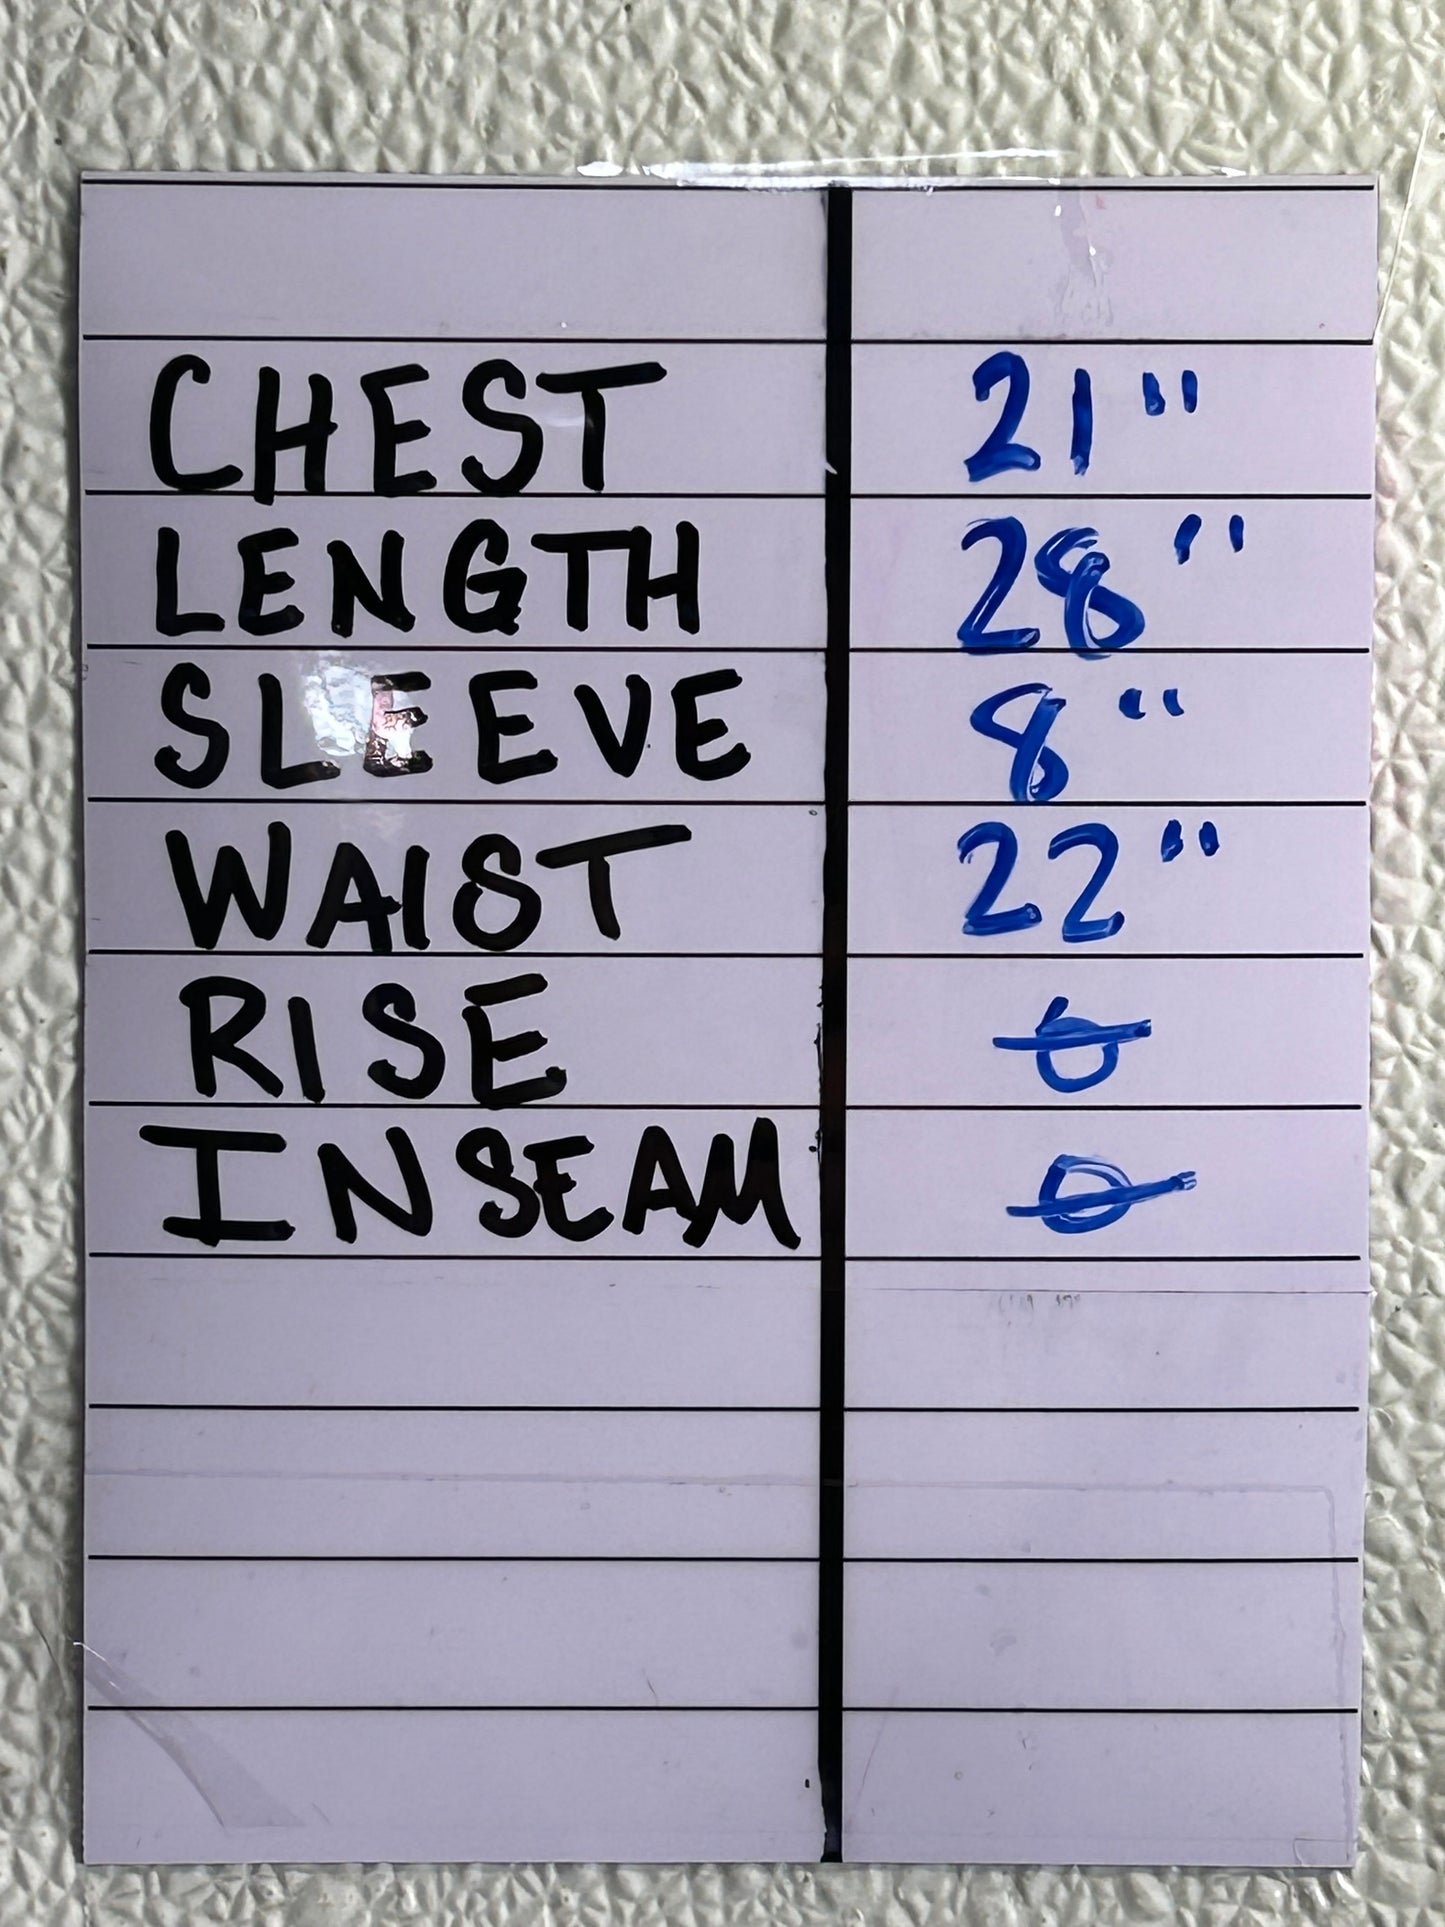 CHEST 21"
LENGTH 28"
SLEEVE 8"
WAIST 22"
RISE
INSEAM